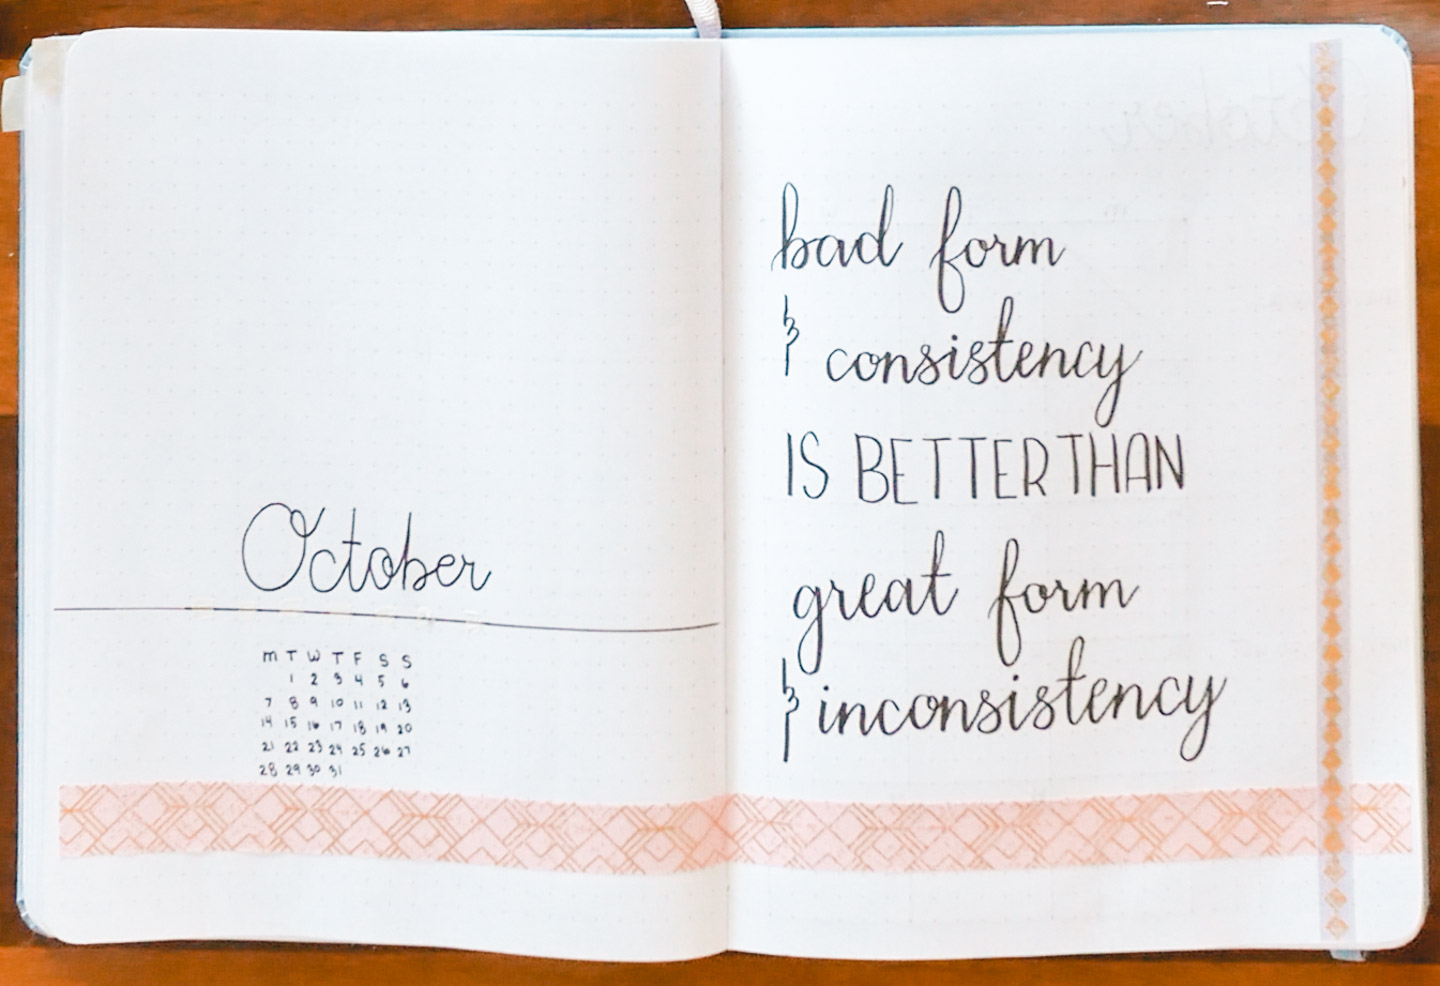 October
M T W T F S S
1 2 3 4 5 6
7 8 9 10 11 12 13
14 15 16 17 18 19 20
21 22 23 24 25 26 27
28 29 30 31
bad form
& consistency
IS BETTER THAN
great form
& inconsistency